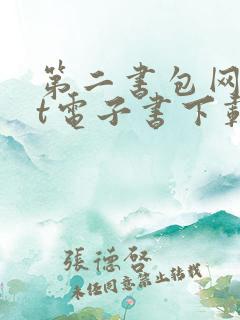 第二書包网
t電子書下載
張德啓
未经同意禁止转载